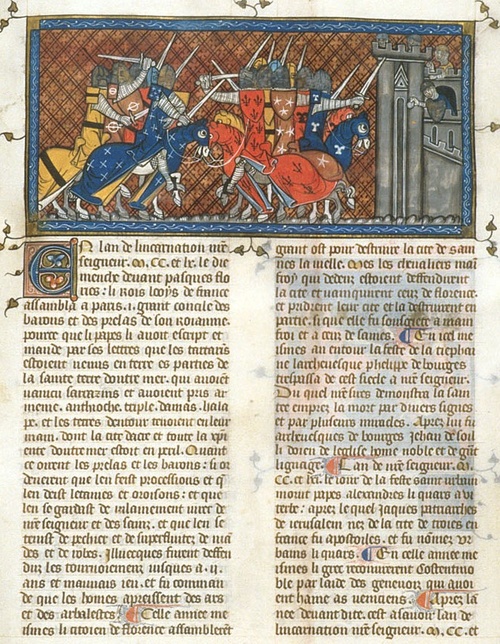 En lan de lincarnation nre
seigneur. m. cc. et lx. le die
menche devant pasques flo
ries: li rois looys de france
assambla a paris. i. grant concile des
barons et des prelas de son roiaume.
pource que li papes li avoit escript et
mande par ses lettres que les tartaris
estoient venus en terre es parties de
la sainte terre doutre mer. qui avoient
vaincu sarrazins et avoient pris ar
menie. anthioche. triple. damas. hala
pe. et les terres dentour tenoient en leur
main. dont la cite dacre et toute la xpi
ente doutre mer estoit en peril. Quant
ce oirent les prelas et les barons: si or
denerent que len feist processions et q
len deist letanies et oroisons: et que
len se gardast de vilainement iurer de
nre seigneur et des sainz. et que len se
tenist de pechier et de superfluitez de via
des et de robes. Illuecques furent deffen
duz les tournoiemenz iusques a. ii.
ans et mauvais ieu. et fu comman
de que les homes apreissent des ars
et des arbalestes. Celle annee me
ismes li citoien de florence assemblerent
grant ost pour destruire la cite de sain
nes la vielle. mes les chevaliers mai
froy qui dedenz estoient deffendirent
la cite et vainquirent ceuz de florence.
et pridrent leur cite et la destruirent en
partie. si que elle fu sousgiete a main
froi et a ceuz de saines. En icel me
ismes an entour la feste de la tiephai
ne larchevesque phelipe de bourges
trespassa de cest siecle a nre seigneur.
Du quel nre sires demonstra la sain
tee emprez la mort par divers signes
et par plusieurs miracles. Aprez lui fu
archevesques de bourges Jehan de soil
li doien de leglise home noble et de gnt
lignage. Lan de nre seigneur. m.
cc. et lx. le iour de la feste saint urbain
morut papes alexandres li quars a vi
terbe: aprez le quel Jaques patriarches
de ierusalem nez de la cite de troies en
france fu apostoiles. et fu nommez vr
bains li quars. En celle annee me
ismes li grec recouvrerent Costentino
ble par laide des genevois qui avoi
ent haine as veniciens. Aprez lan
nee devant dite. cest a savoir lan de
lincarnation nre seigneur. m. cc. et